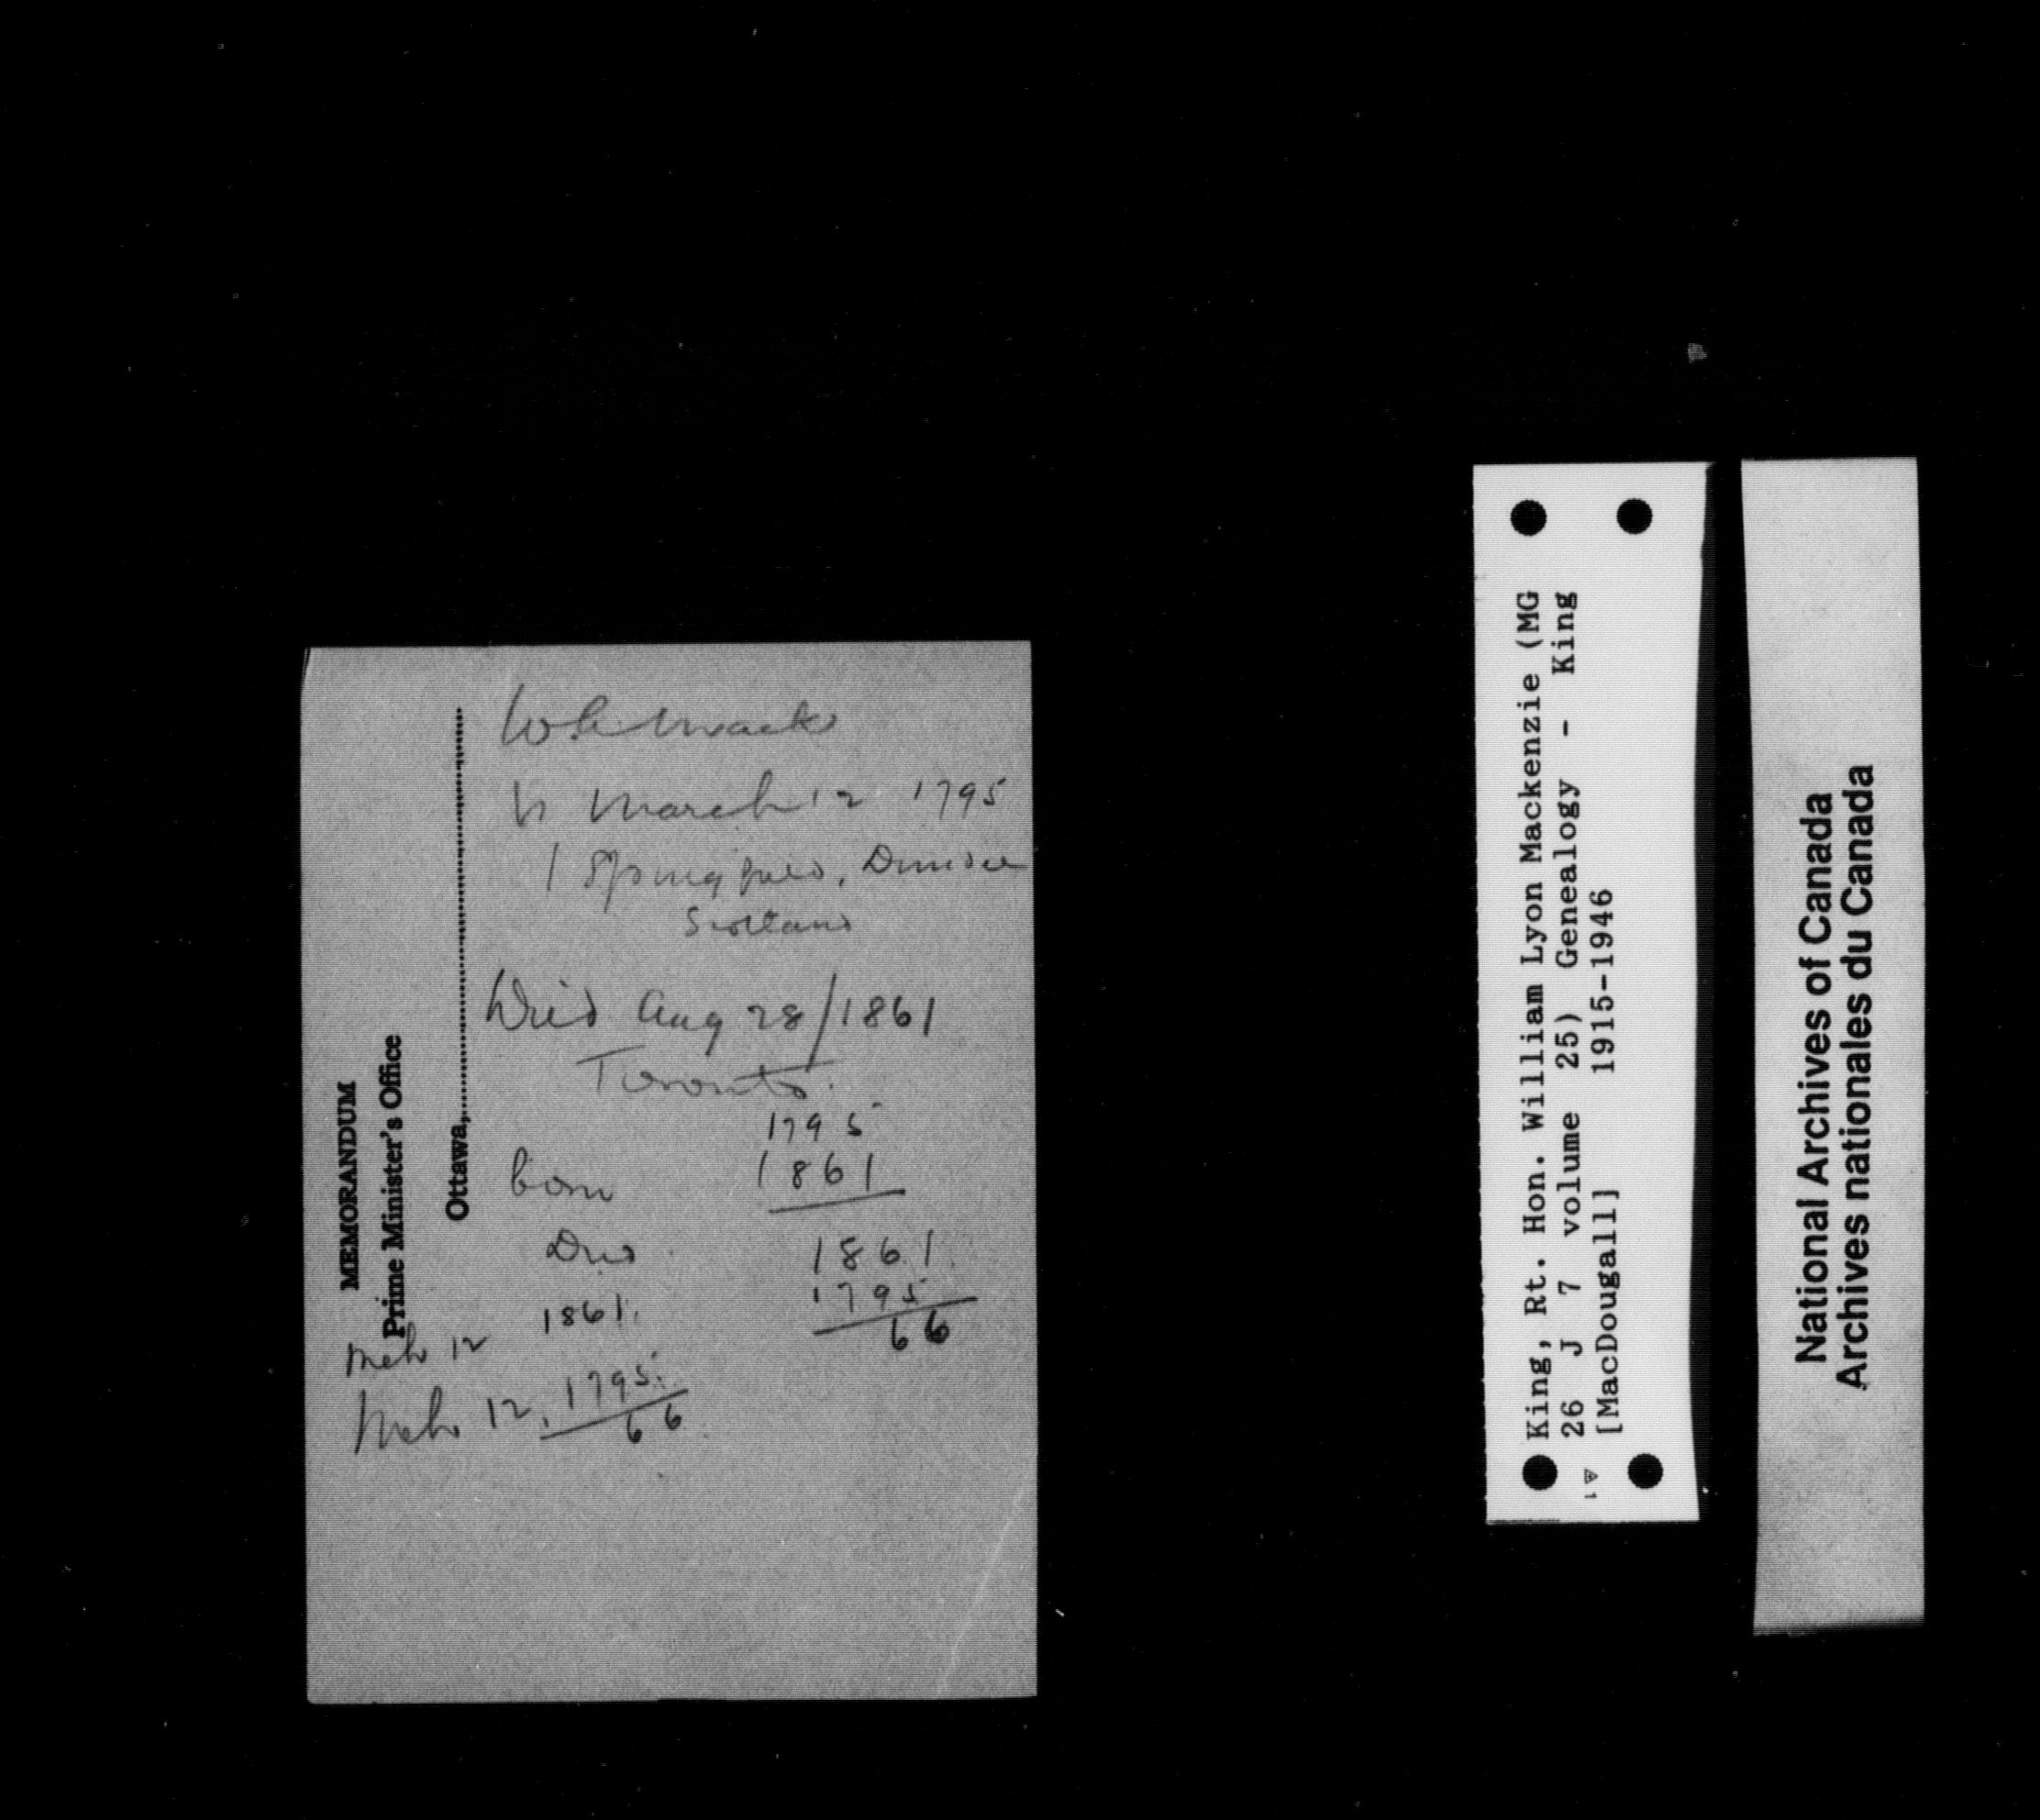 MEMORANDUM
Prime Minister's Office
Ottawa,
Wm Mack
b March 12 1795
Springfield, Dundee
Scotland
Died Aug 28/1861
Toronto.
1795
born 1861
Died 1861
1861. 1795
Mch 12 66
Mch 12, 1795.
66
King, Rt. Hon. William Lyon Mackenzie (MG
26 J 7 volume 25) Genealogy - King
[MacDougall] 1915-1946
National Archives of Canada
Archives nationales du Canada